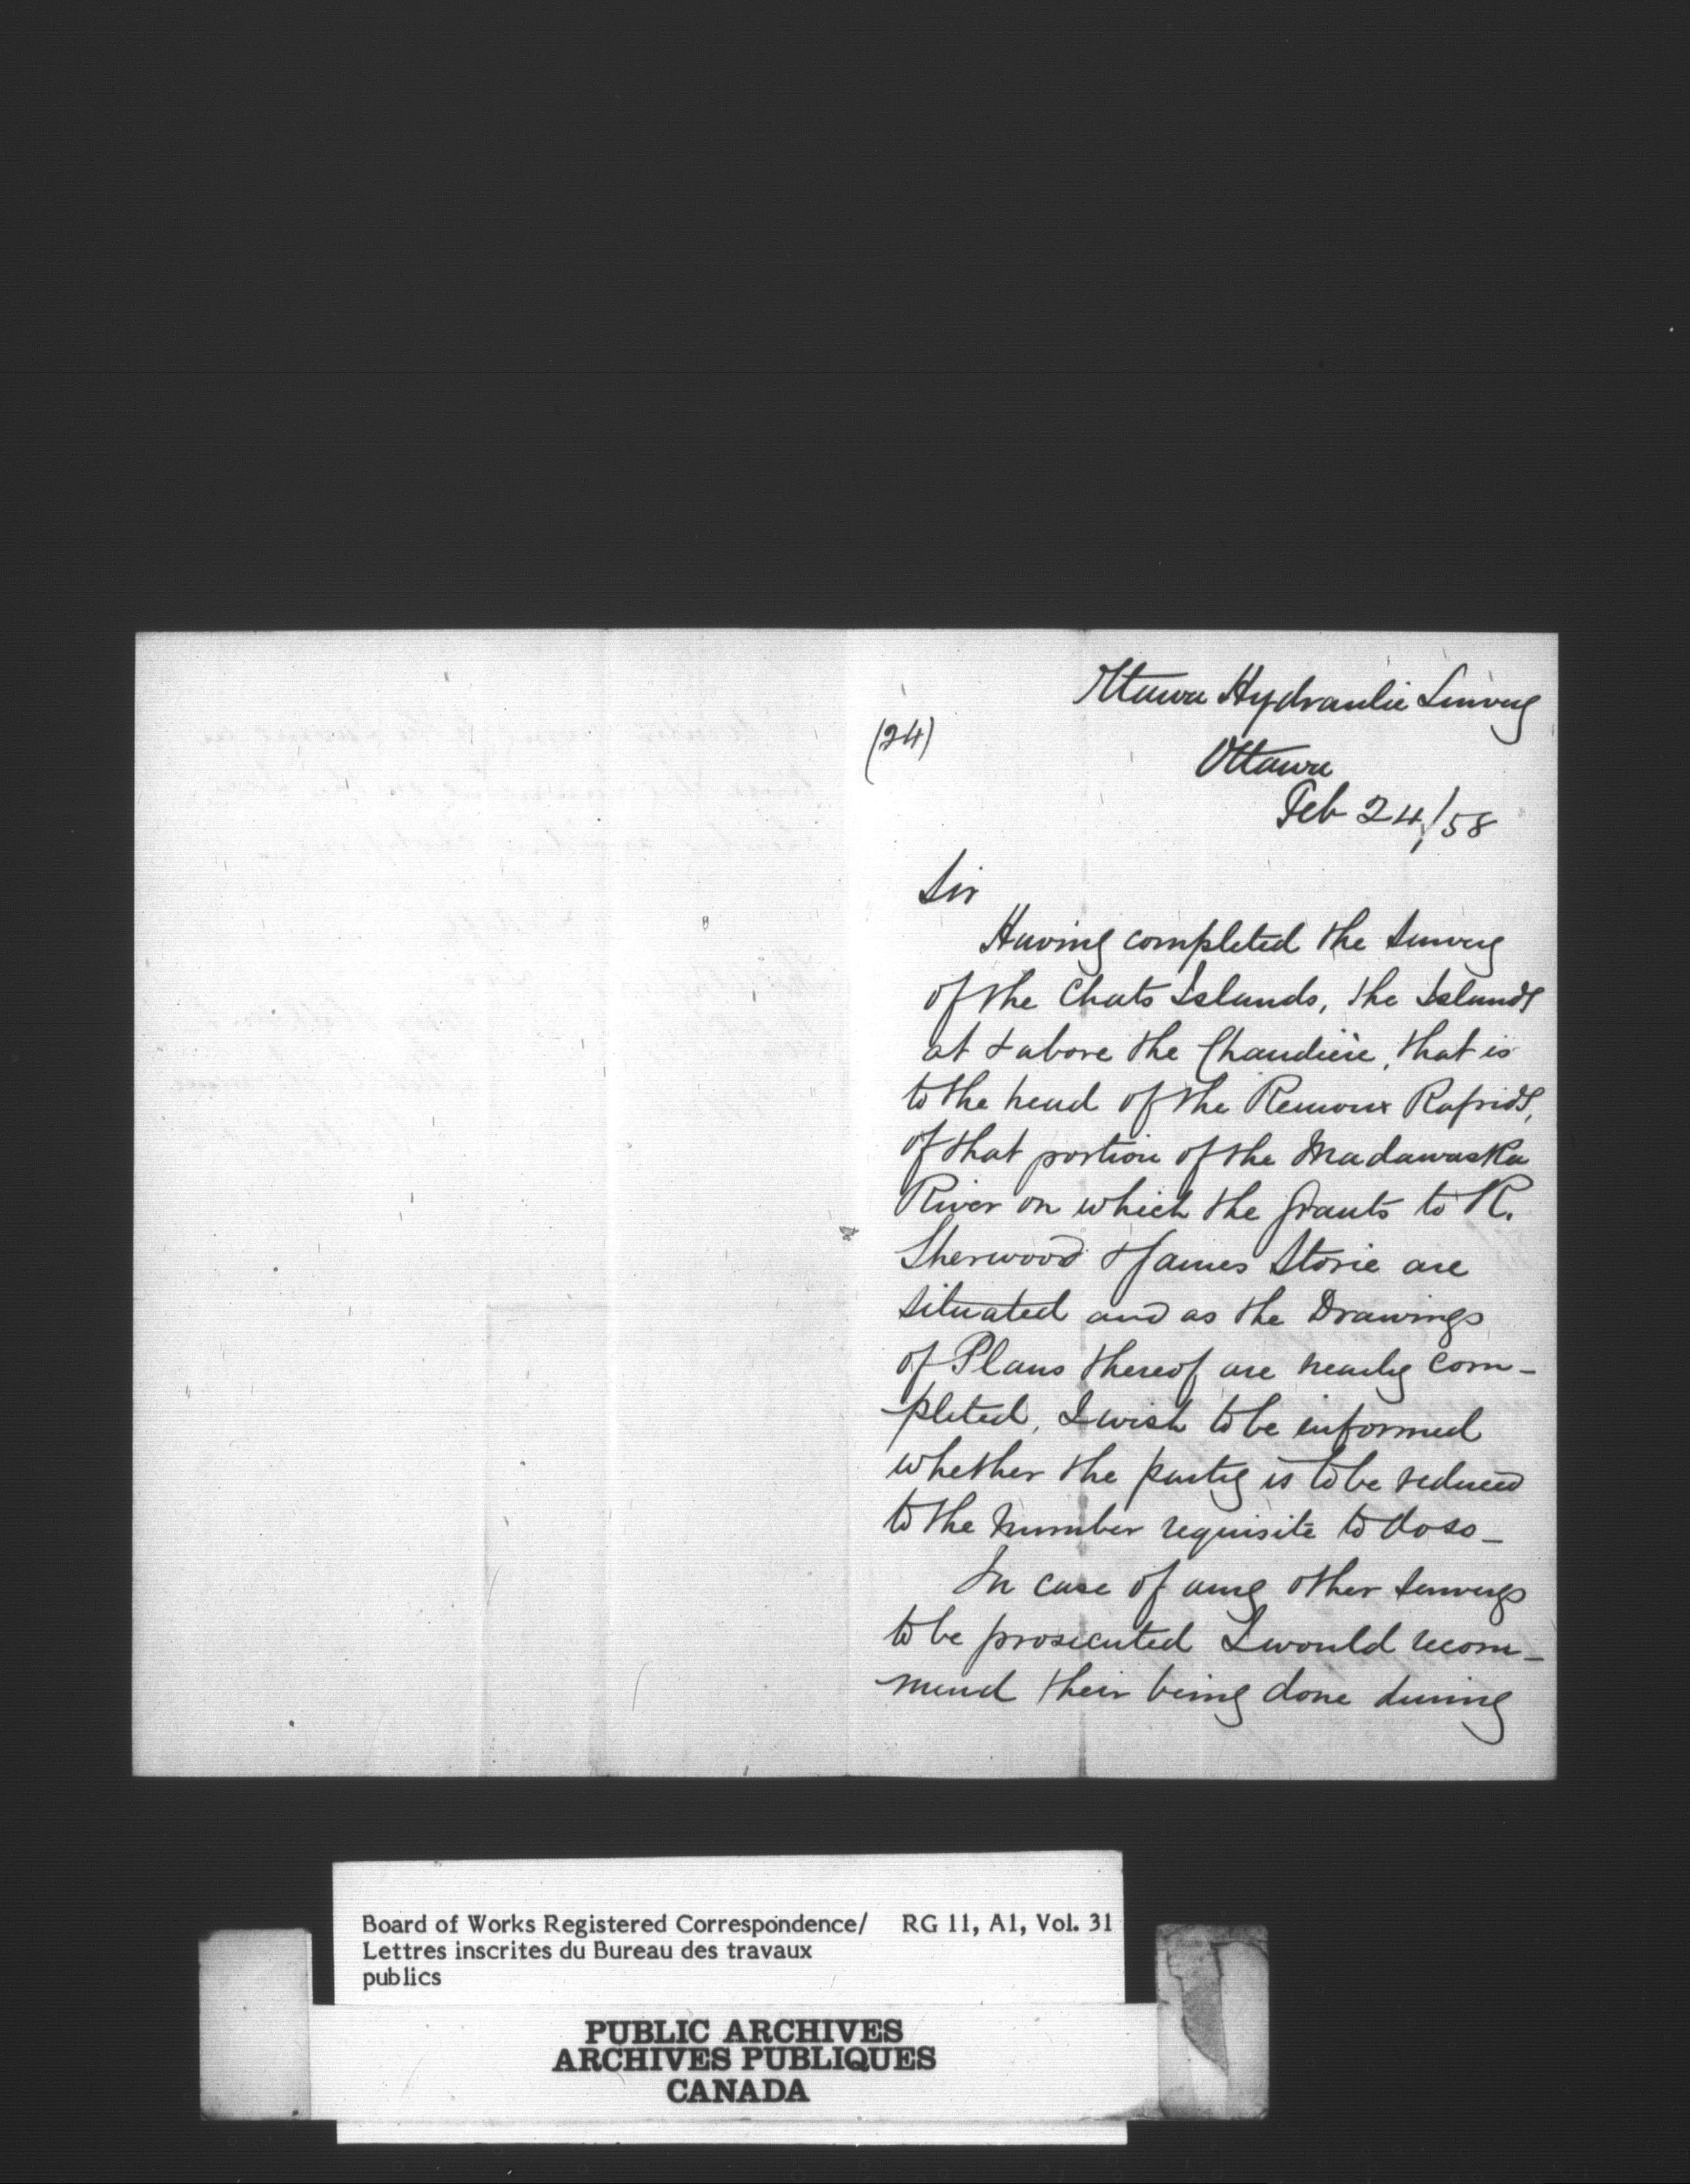 Ottawa Hydraulic Survey
(24)
Ottawa
Feb 24/58
Sir
Having completed the Survey
of the Chats Islands, the Islands
at & above the Chaudiere, that is
to the head of the Remoux Rapids,
of that portion of the Madawaska
River on which the Grants to R.
Sherwood & James Storie are
situated and as the Drawings
of Plans thereof are nearly com-
pleted, I wish to be informed
whether the party is to be reduced
to the number requisite to do so_
In case of any other surveys
to be prosecuted I would recom-
mend their being done during
Board of Works Registered Correspondence/ RG 11, A1, Vol. 31
Lettres inscrites du Bureau des travaux
publics
PUBLIC ARCHIVES
ARCHIVES PUBLIQUES
CANADA